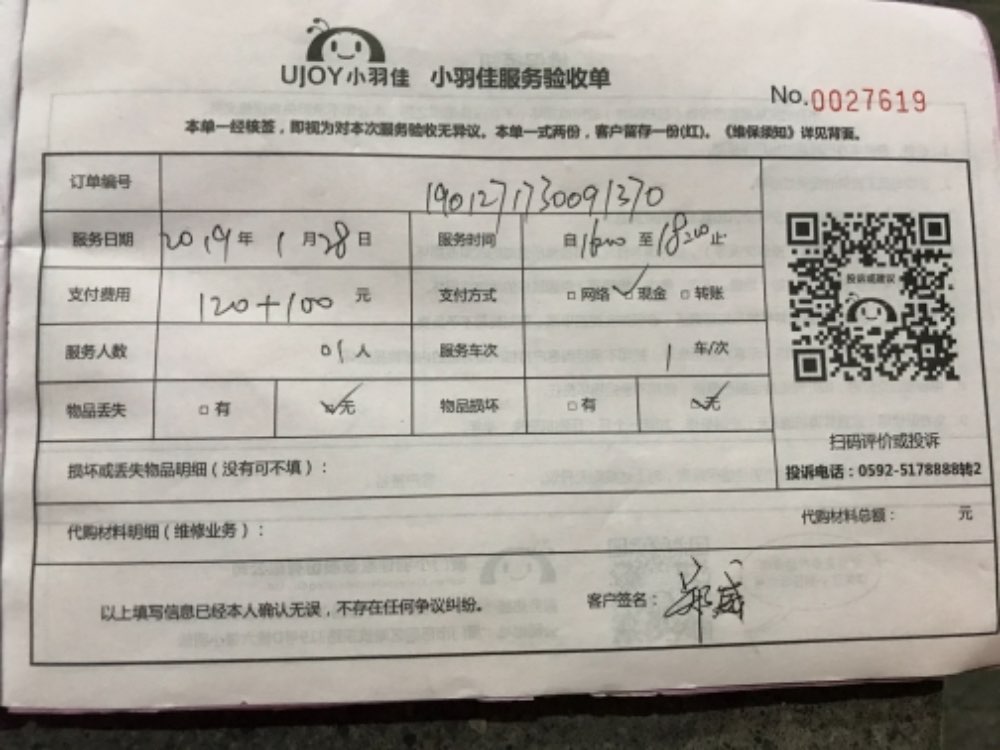 UJOY小羽佳 小羽佳服务验收单
No.0027619
本单一经核签，即视为对本次服务验收无异议。本单一式两份，客户留存一份(红)。《维保须知》详见背面。
订单编号 1901271730091370
服务日期 2019年 1月28日 服务时间 自16:00至18:00止
支付费用 120+100 元 支付方式 □网络 ☑现金 □转账
服务人数 01人 服务车次 1 车/次
物品丢失 □有 ☑无 物品损坏 □有 ☑无
投诉或建议
扫码评价或投诉
投诉电话：0592-5178888转2
损坏或丢失物品明细（没有可不填）：
代购材料明细（维修业务）： 代购材料总额： 元
以上填写信息已经本人确认无误，不存在任何争议纠纷。 客户签名：